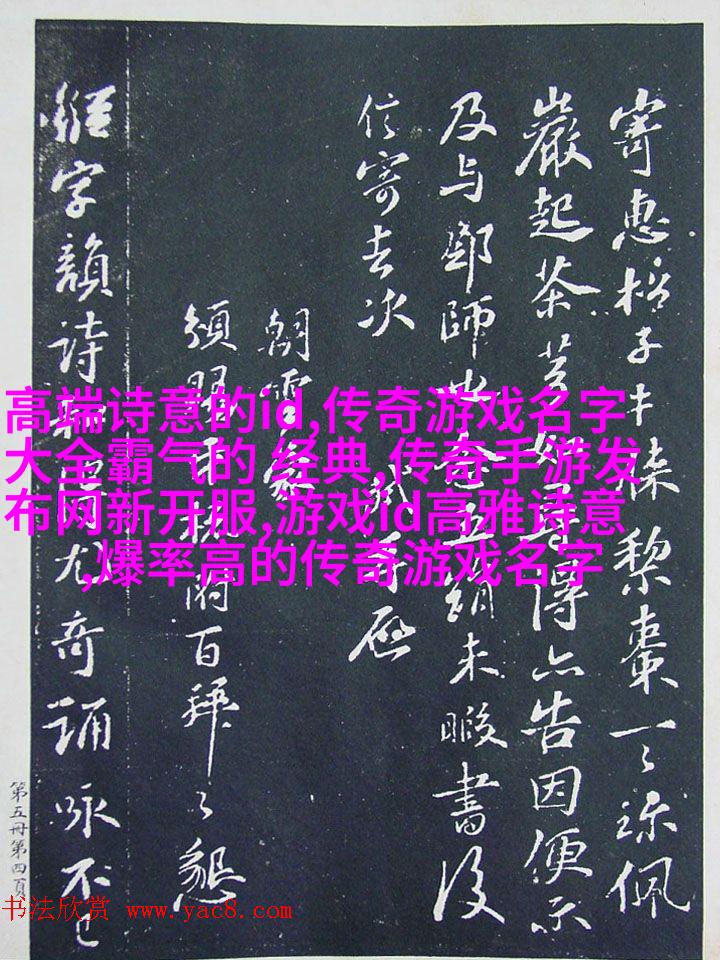 寄惠 子十 黎棗一〻珎佩
嚴起茶芽如尋得亦告因便示
及与鄭師 會五 未暇書后
信寄去次
軾再啟
朝雲蒙
頒 百拜〻懇
字韻詩 尤奇誦咏不已
第五冊第四頁
高端诗意的id,传奇游戏名字
大全霸气的 经典,传奇手游发
布网新开服,游戏id高雅诗意
,爆率高的传奇游戏名字
书法欣赏 www.yac8.com